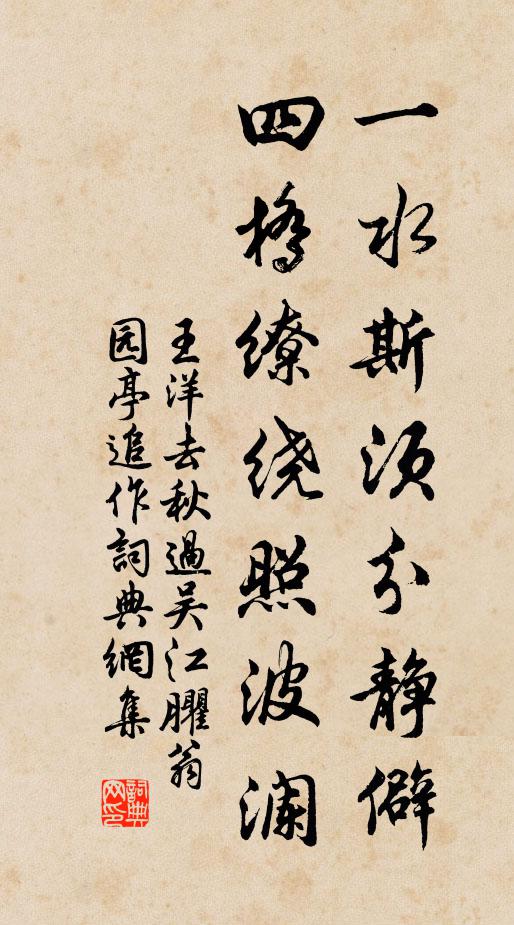 一水斯须分静僻
四桥缭绕照波澜
王洋去秋過吴江臞翁
园亭追作詞典網集
詞典网印